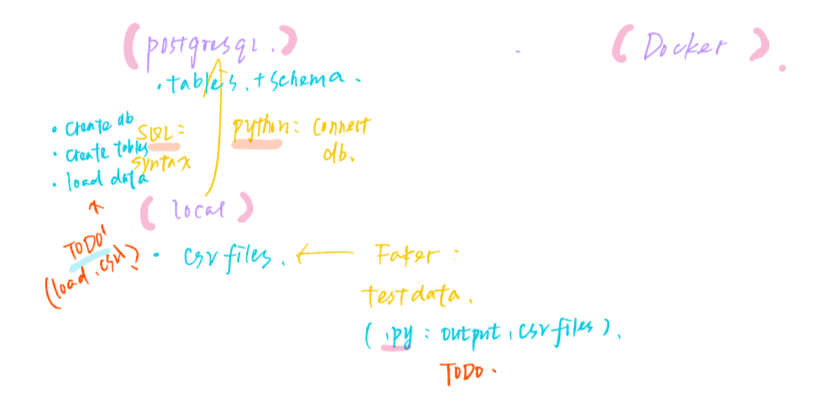 (postgresql.)
(Docker).
· tables. + schema.
· create db
· create tables
· load data
SQL:
syntax
python: connect
db.
(local)
TODO!
(load.csv)
· csv files. ← Faker:
test data.
(.py: output, csv files).
TODO.